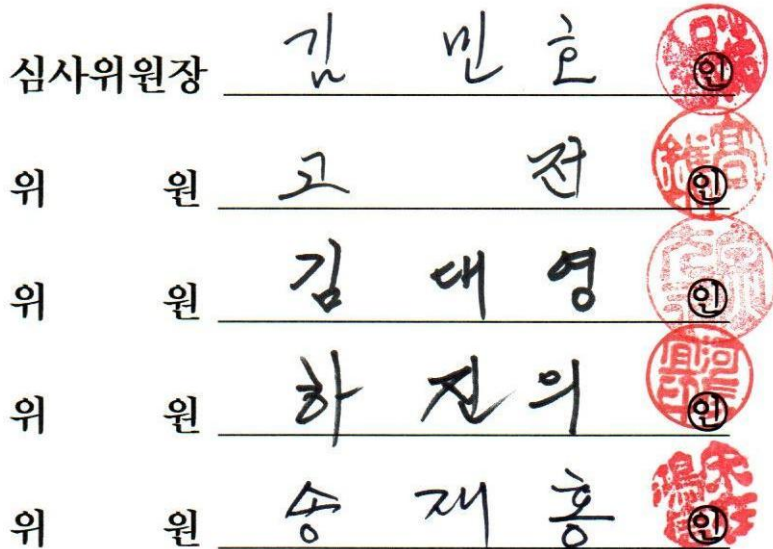 심사위원장 김 민 호 ㊞
위 원 고 전 ㊞
위 원 김 대 영 ㊞
위 원 하 진 의 ㊞
위 원 송 재 홍 ㊞